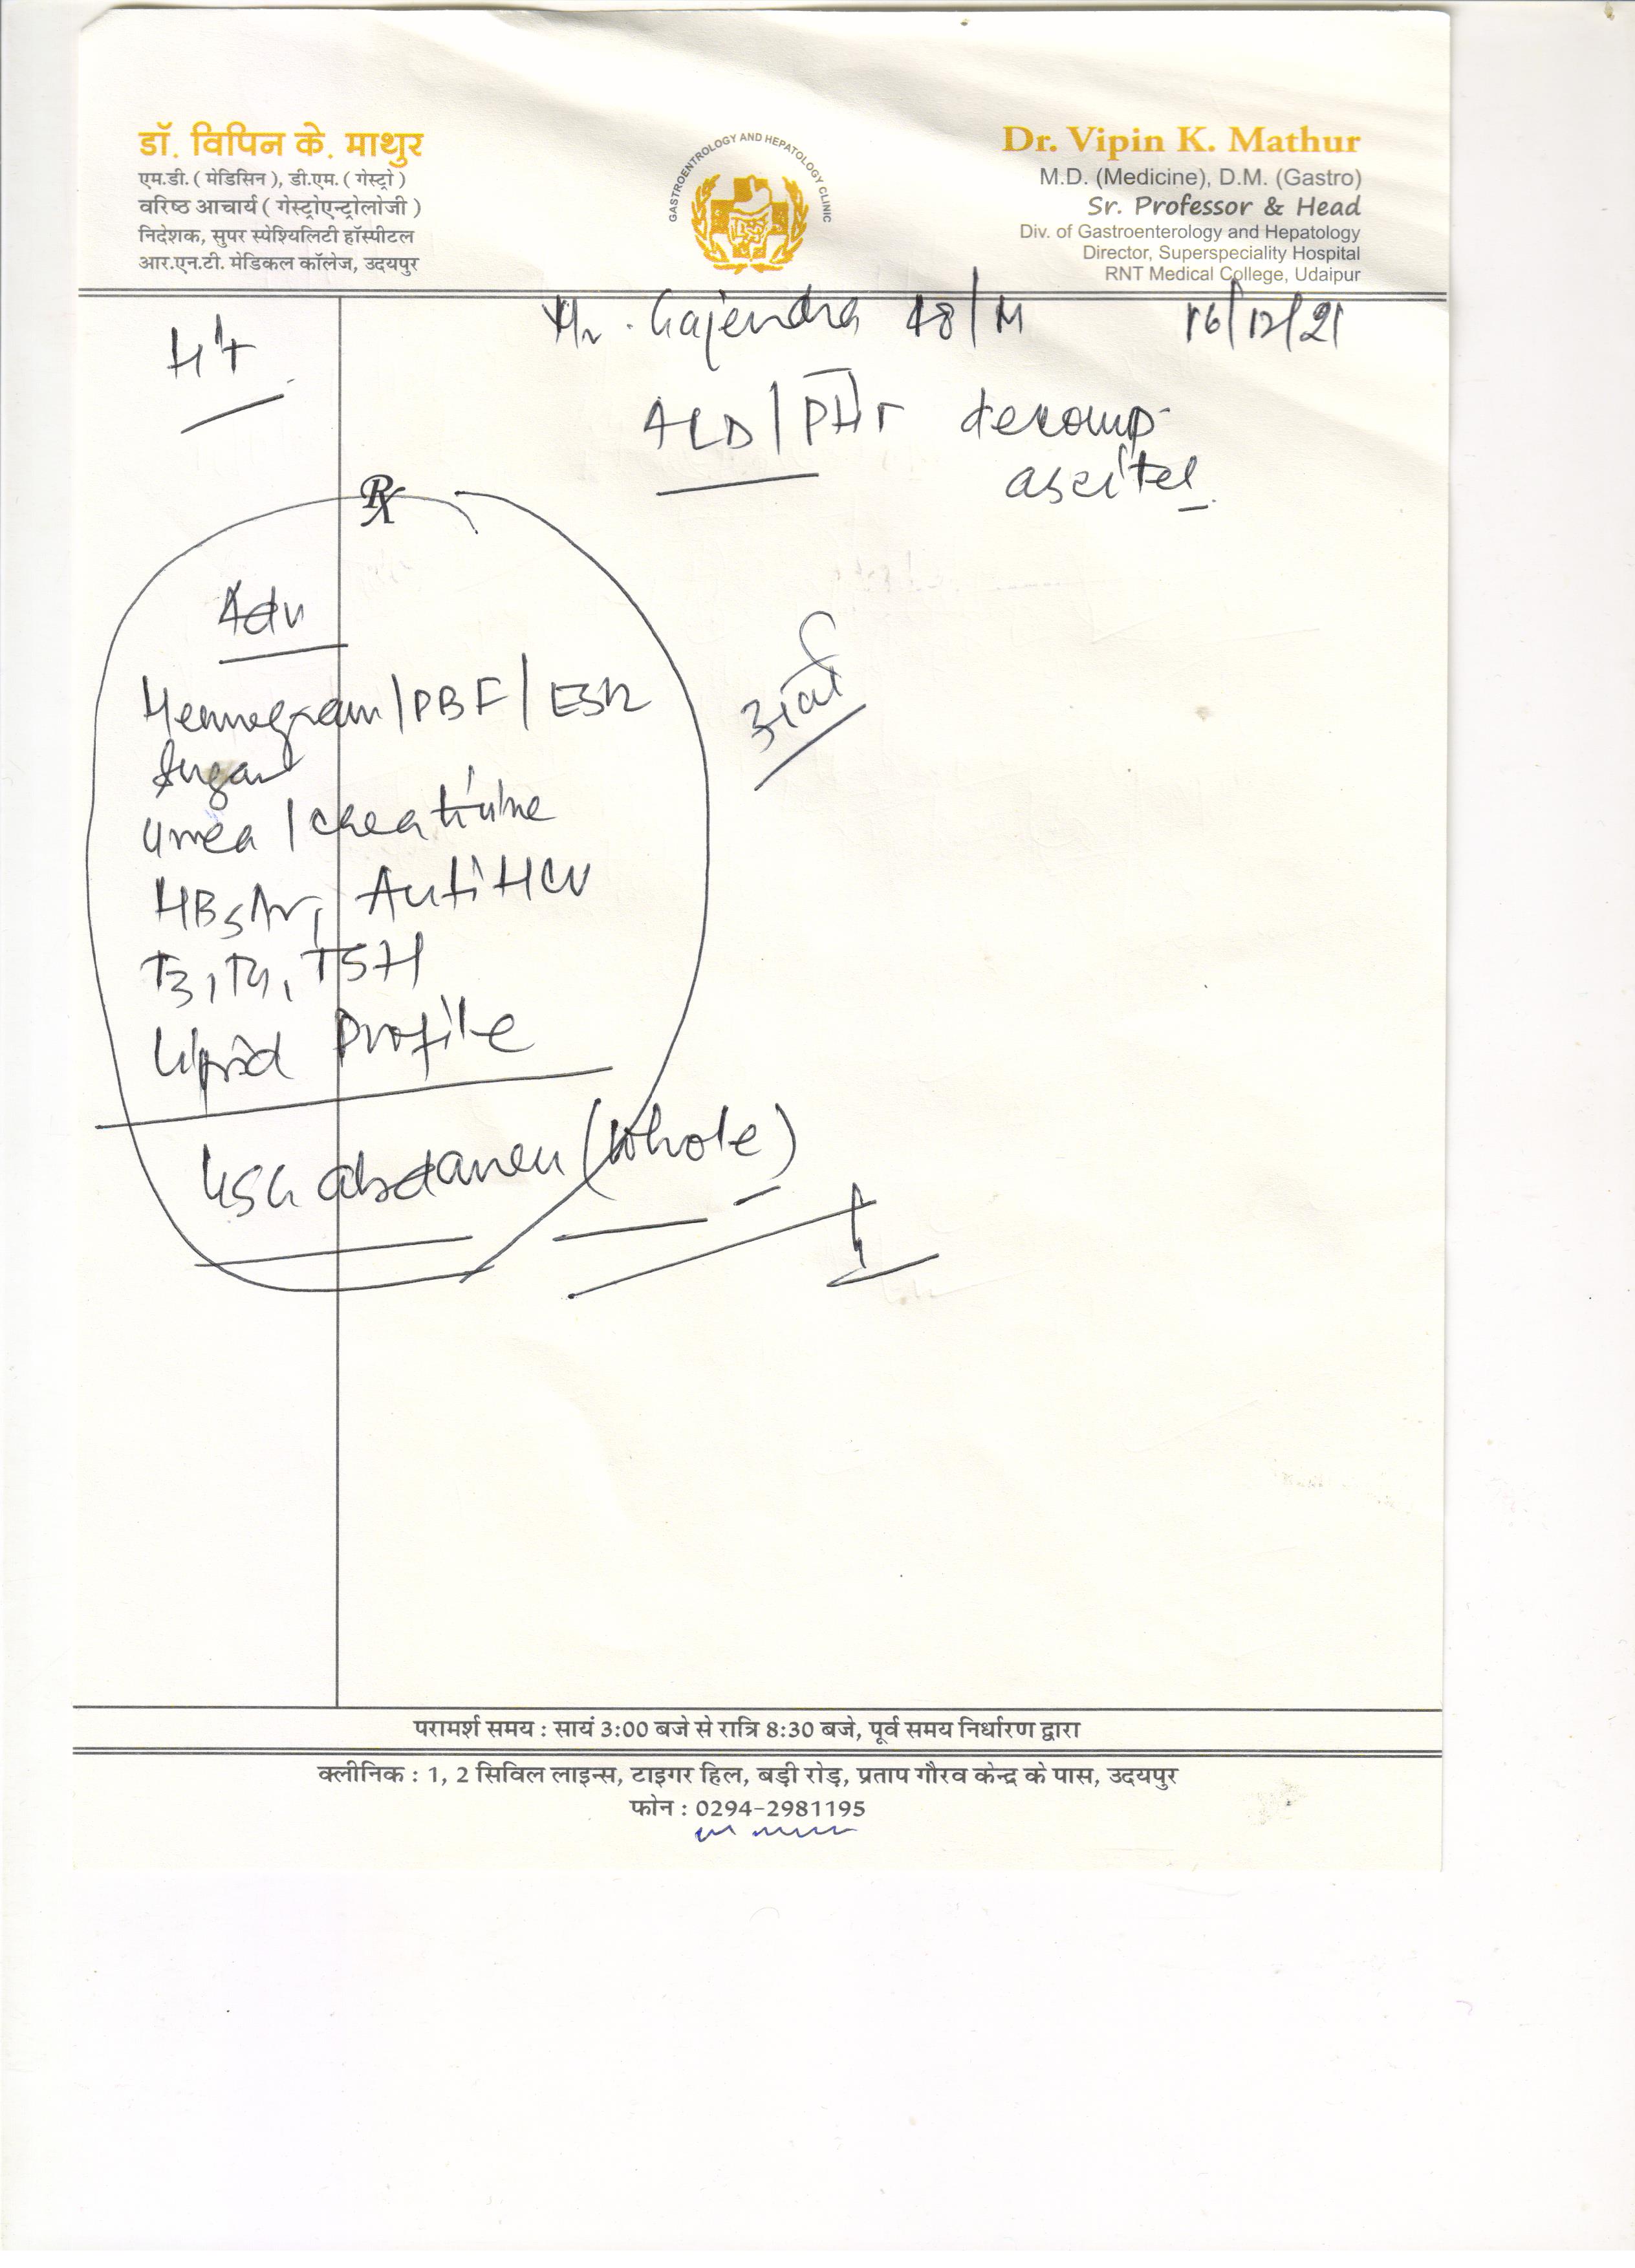 डॉ. विपिन के. माथुर
एम.डी. ( मेडिसिन ), डी.एम. ( गेस्ट्रो )
वरिष्ठ आचार्य ( गेस्ट्रोएन्ट्रोलोजी )
निदेशक, सुपर स्पेश्यिलिटी हॉस्पीटल
आर.एन.टी. मेडिकल कॉलेज, उदयपुर
GASTROENTROLOGY AND HEPATOLOGY CLINIC
Dr. Vipin K. Mathur
M.D. (Medicine), D.M. (Gastro)
Sr. Professor & Head
Div. of Gastroenterology and Hepatology
Director, Superspeciality Hospital
RNT Medical College, Udaipur
Mr. Gajendra 48/M 16/12/21
ALD/PHT decomp
ascites
Rx
Adv
Hemogram/PBF/ESR
Sugar
Urea/creatinine
HBsAg, Anti HCV
T3, T4, TSH
Lipid Profile
USG abdomen (whole)
परामर्श समय : सायं 3:00 बजे से रात्रि 8:30 बजे, पूर्व समय निर्धारण द्वारा
क्लीनिक : 1, 2 सिविल लाइन्स, टाइगर हिल, बड़ी रोड़, प्रताप गौरव केन्द्र के पास, उदयपुर
फोन : 0294-2981195